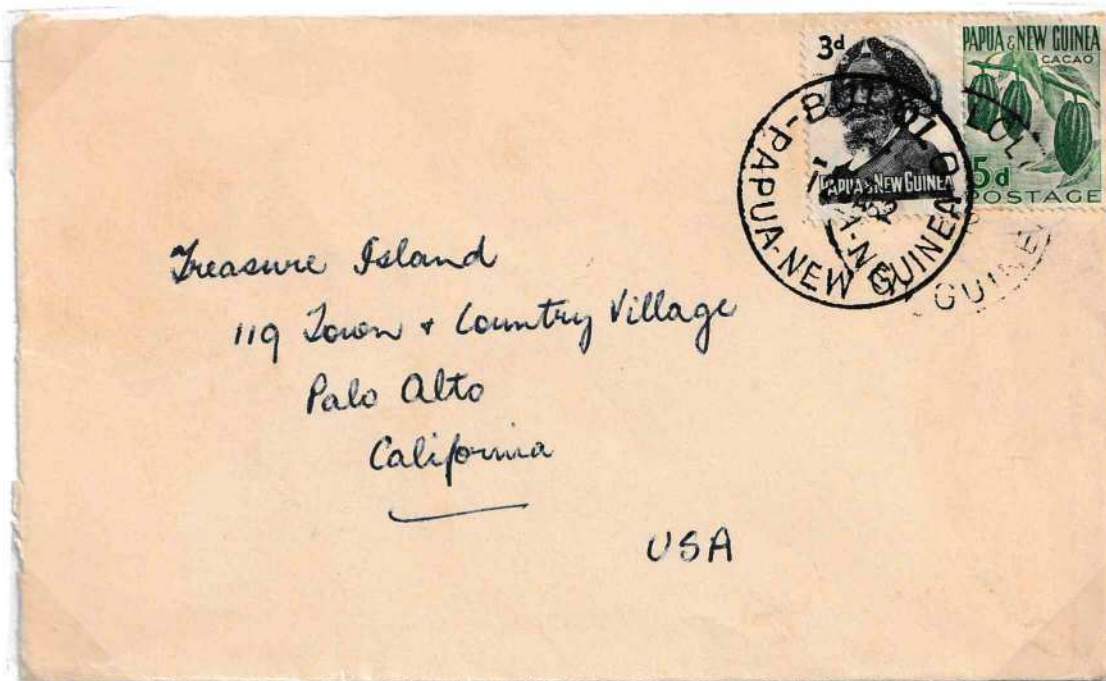 3d
PAPUA & NEW GUINEA
PAPUA & NEW GUINEA
CACAO
5d
POSTAGE
BULOLO
PAPUA-NEW GUINEA
GUINEA
Treasure Island
119 Town + Country Village
Palo Alto
California
USA